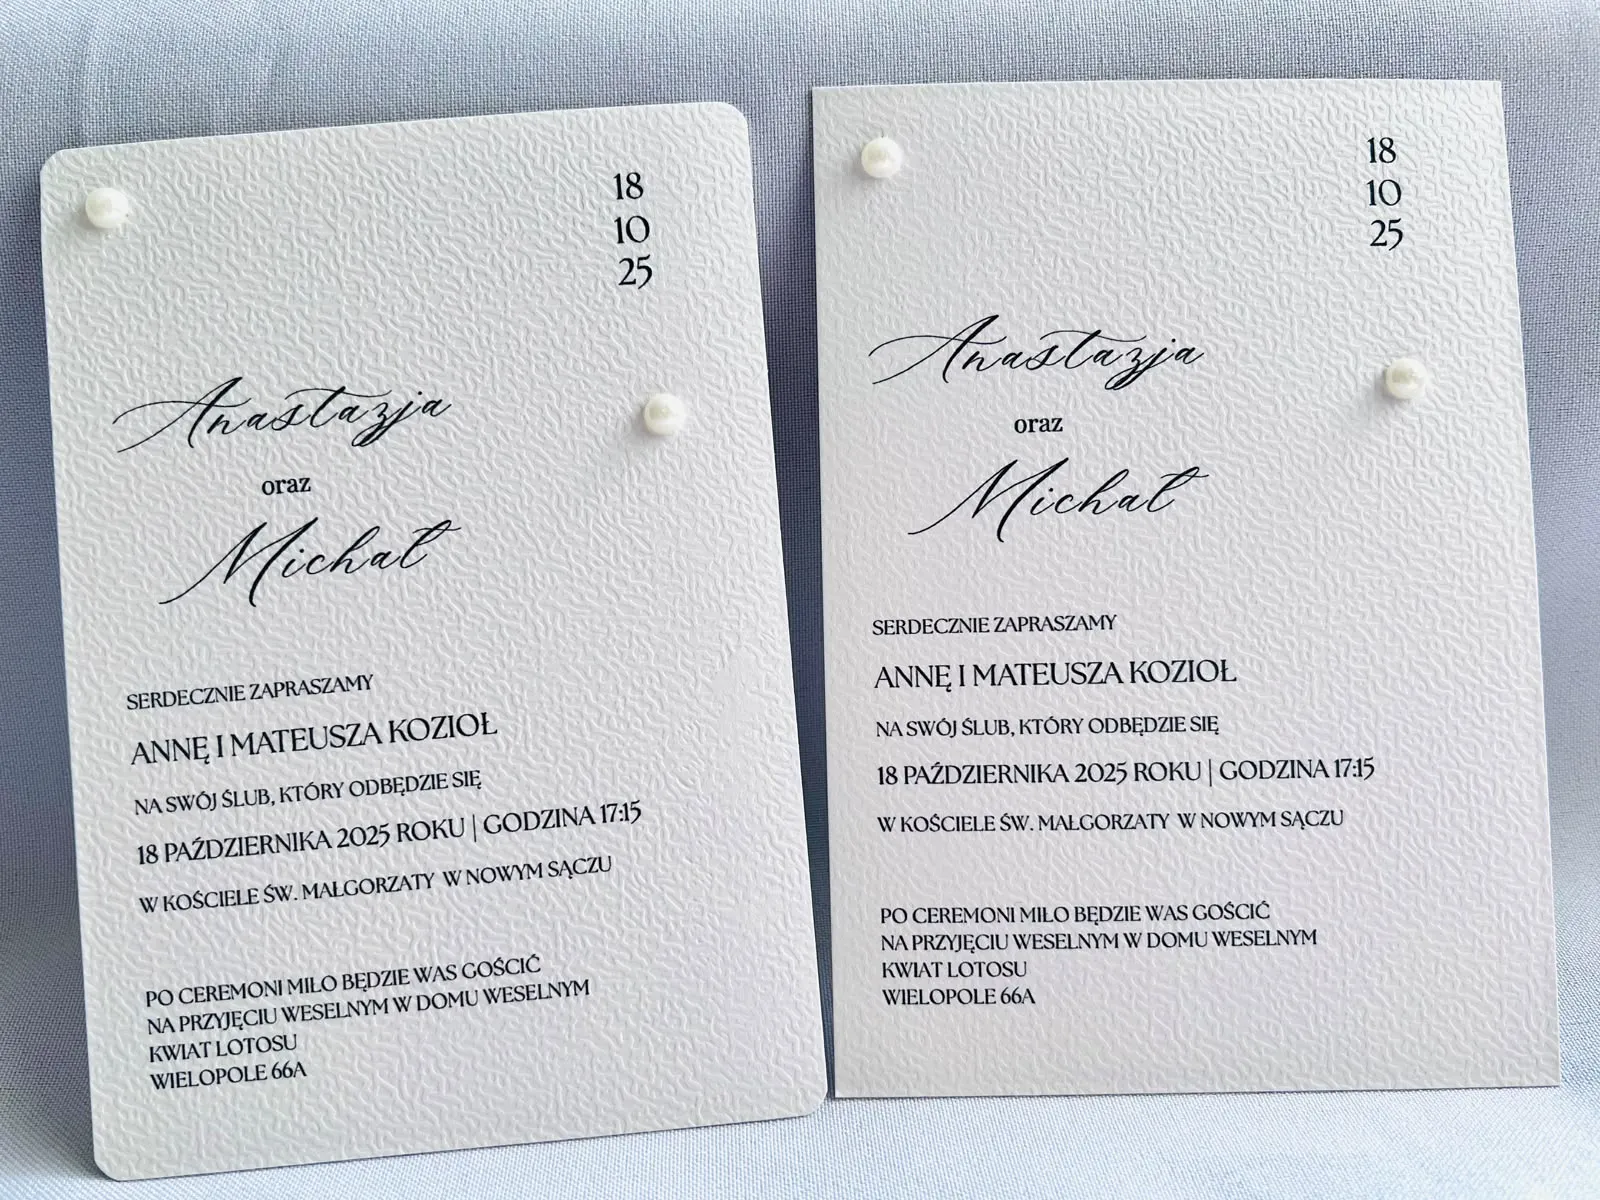 18
10
25
Anastazja
oraz
Michał
SERDECZNIE ZAPRASZAMY
ANNĘ I MATEUSZA KOZIOŁ
NA SWÓJ ŚLUB, KTÓRY ODBĘDZIE SIĘ
18 PAŹDZIERNIKA 2025 ROKU | GODZINA 17:15
W KOŚCIELE ŚW. MAŁGORZATY W NOWYM SĄCZU
PO CEREMONI MIŁO BĘDZIE WAS GOŚCIĆ
NA PRZYJĘCIU WESELNYM W DOMU WESELNYM
KWIAT LOTOSU
WIELOPOLE 66A
18
10
25
Anastazja
oraz
Michał
SERDECZNIE ZAPRASZAMY
ANNĘ I MATEUSZA KOZIOŁ
NA SWÓJ ŚLUB, KTÓRY ODBĘDZIE SIĘ
18 PAŹDZIERNIKA 2025 ROKU | GODZINA 17:15
W KOŚCIELE ŚW. MAŁGORZATY W NOWYM SĄCZU
PO CEREMONI MIŁO BĘDZIE WAS GOŚCIĆ
NA PRZYJĘCIU WESELNYM W DOMU WESELNYM
KWIAT LOTOSU
WIELOPOLE 66A